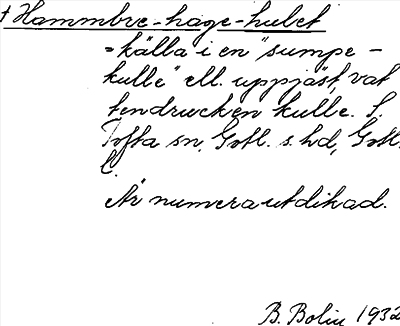 † Hammbre-hage-hulet
= källa i en "sumpe-
kulle" ell. uppjäst, vat
tendrucken kulle. i
Tofta sn. Gotl. s. hd, Gotl.
l.
Är numera utdikad.
B. Bolin 1932